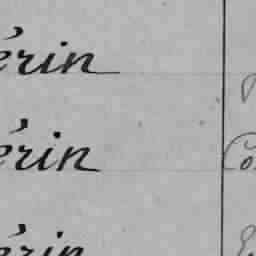 érin
érin
Co
érin